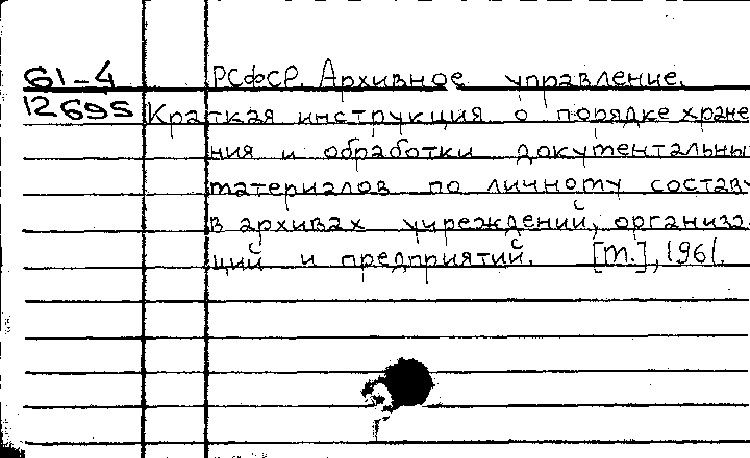 61-4 РСФСР. Архивное управление.
12695 Краткая инструкция о порядке хране
ния и обработки документальны
материалов по личному составу
в архивах учреждений, организа-
ций и предприятий. [М.], 1961.